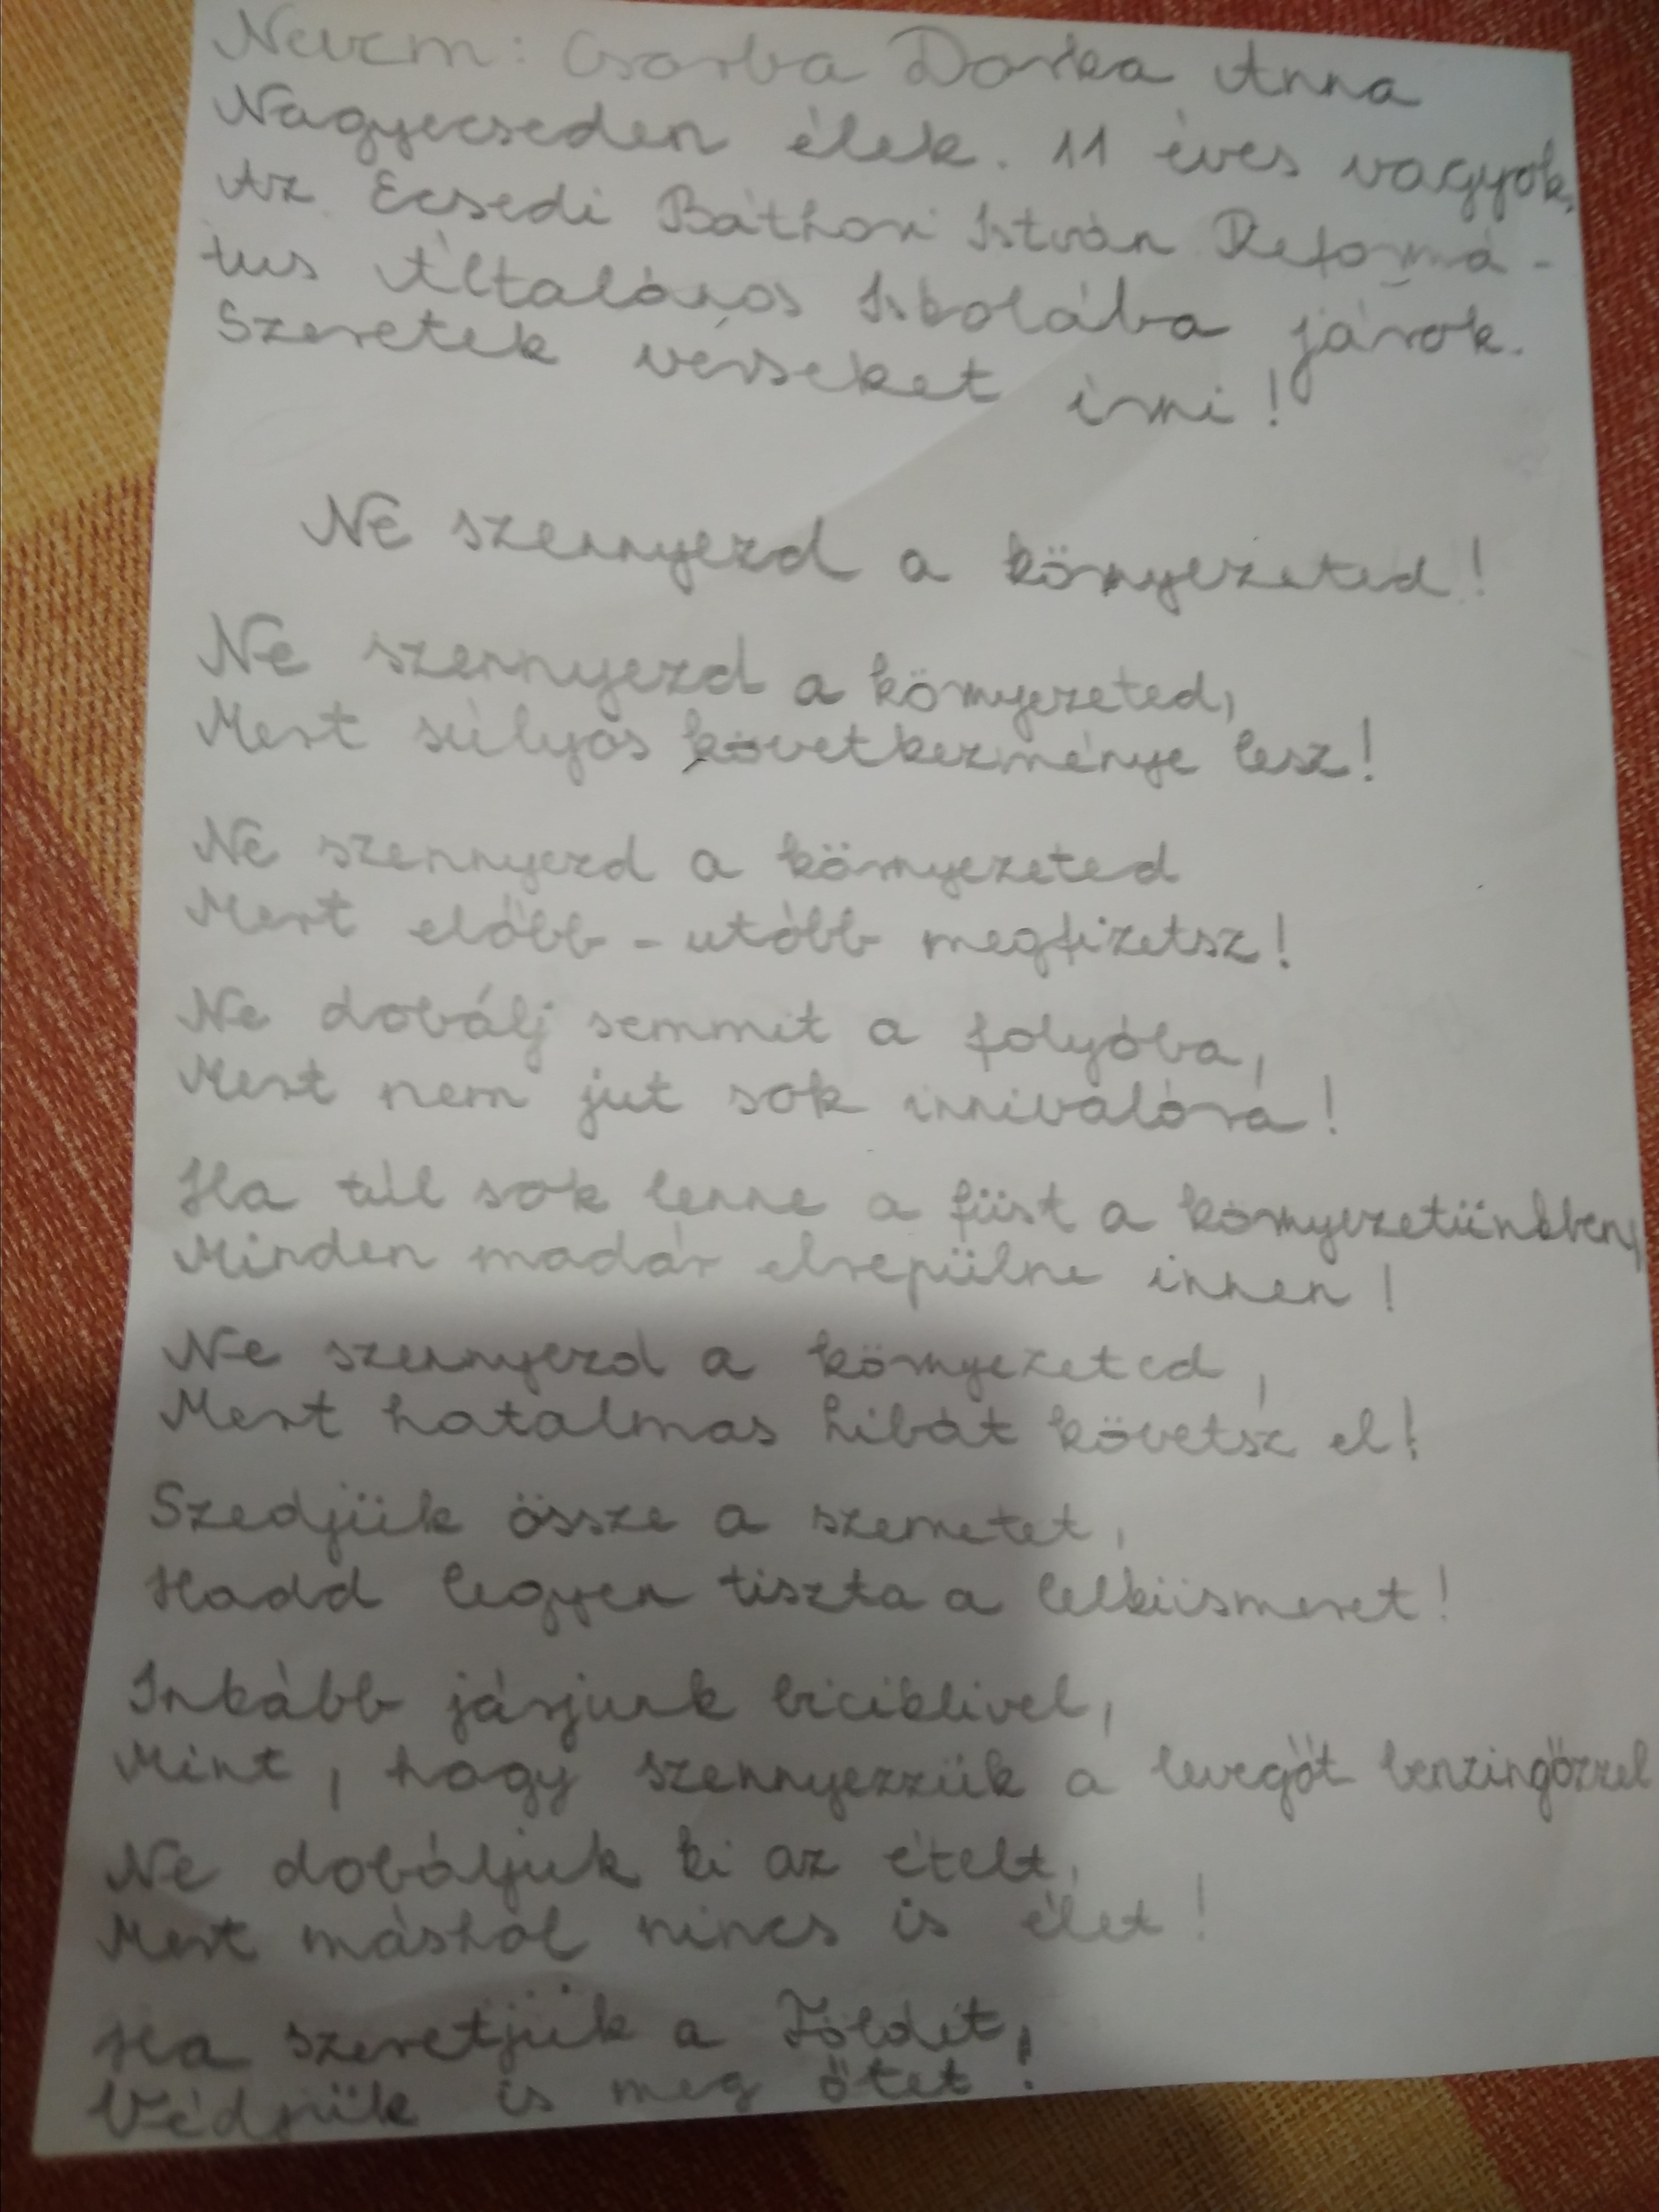 Nevem: Csorba Dorka Anna
Nagyecseden élek. 11 éves vagyok.
Az Ecsedi Báthori István Reformá-
tus Általános Iskolába járok.
Szeretek verseket írni!
Ne szennyezd a környezeted!
Ne szennyezd a környezeted,
Mert súlyos következménye lesz!
Ne szennyezd a környezeted
Mert előbb-utóbb megfizetsz!
Ne dobálj semmit a folyóba,
Mert nem jut sok innivalóra!
Ha túl sok lenne a füst a környezetünkben,
Minden madár elrepülne innen!
Ne szennyezd a környezeted,
Mert hatalmas hibát követsz el!
Szedjük össze a szemetet,
Hadd legyen tiszta a lelkiismeret!
Inkább járjunk biciklivel,
Mint, hogy szennyezzük a levegőt benzingőzzel
Ne dobáljuk ki az ételt,
Mert máshol nincs is élet!
Ha szeretjük a Földet,
Védjük is meg őtet!